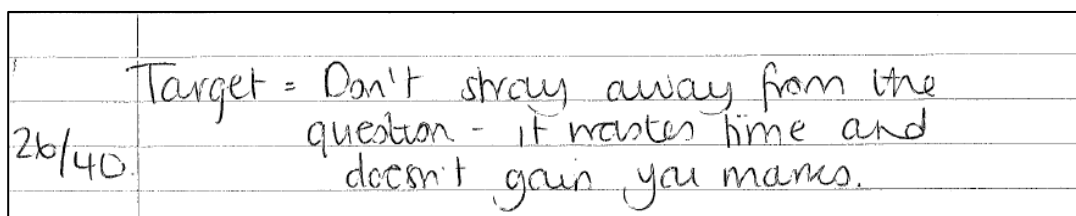 Target = Don't stray away from the
question - it wastes time and
26/40.
doesn't gain you marks.